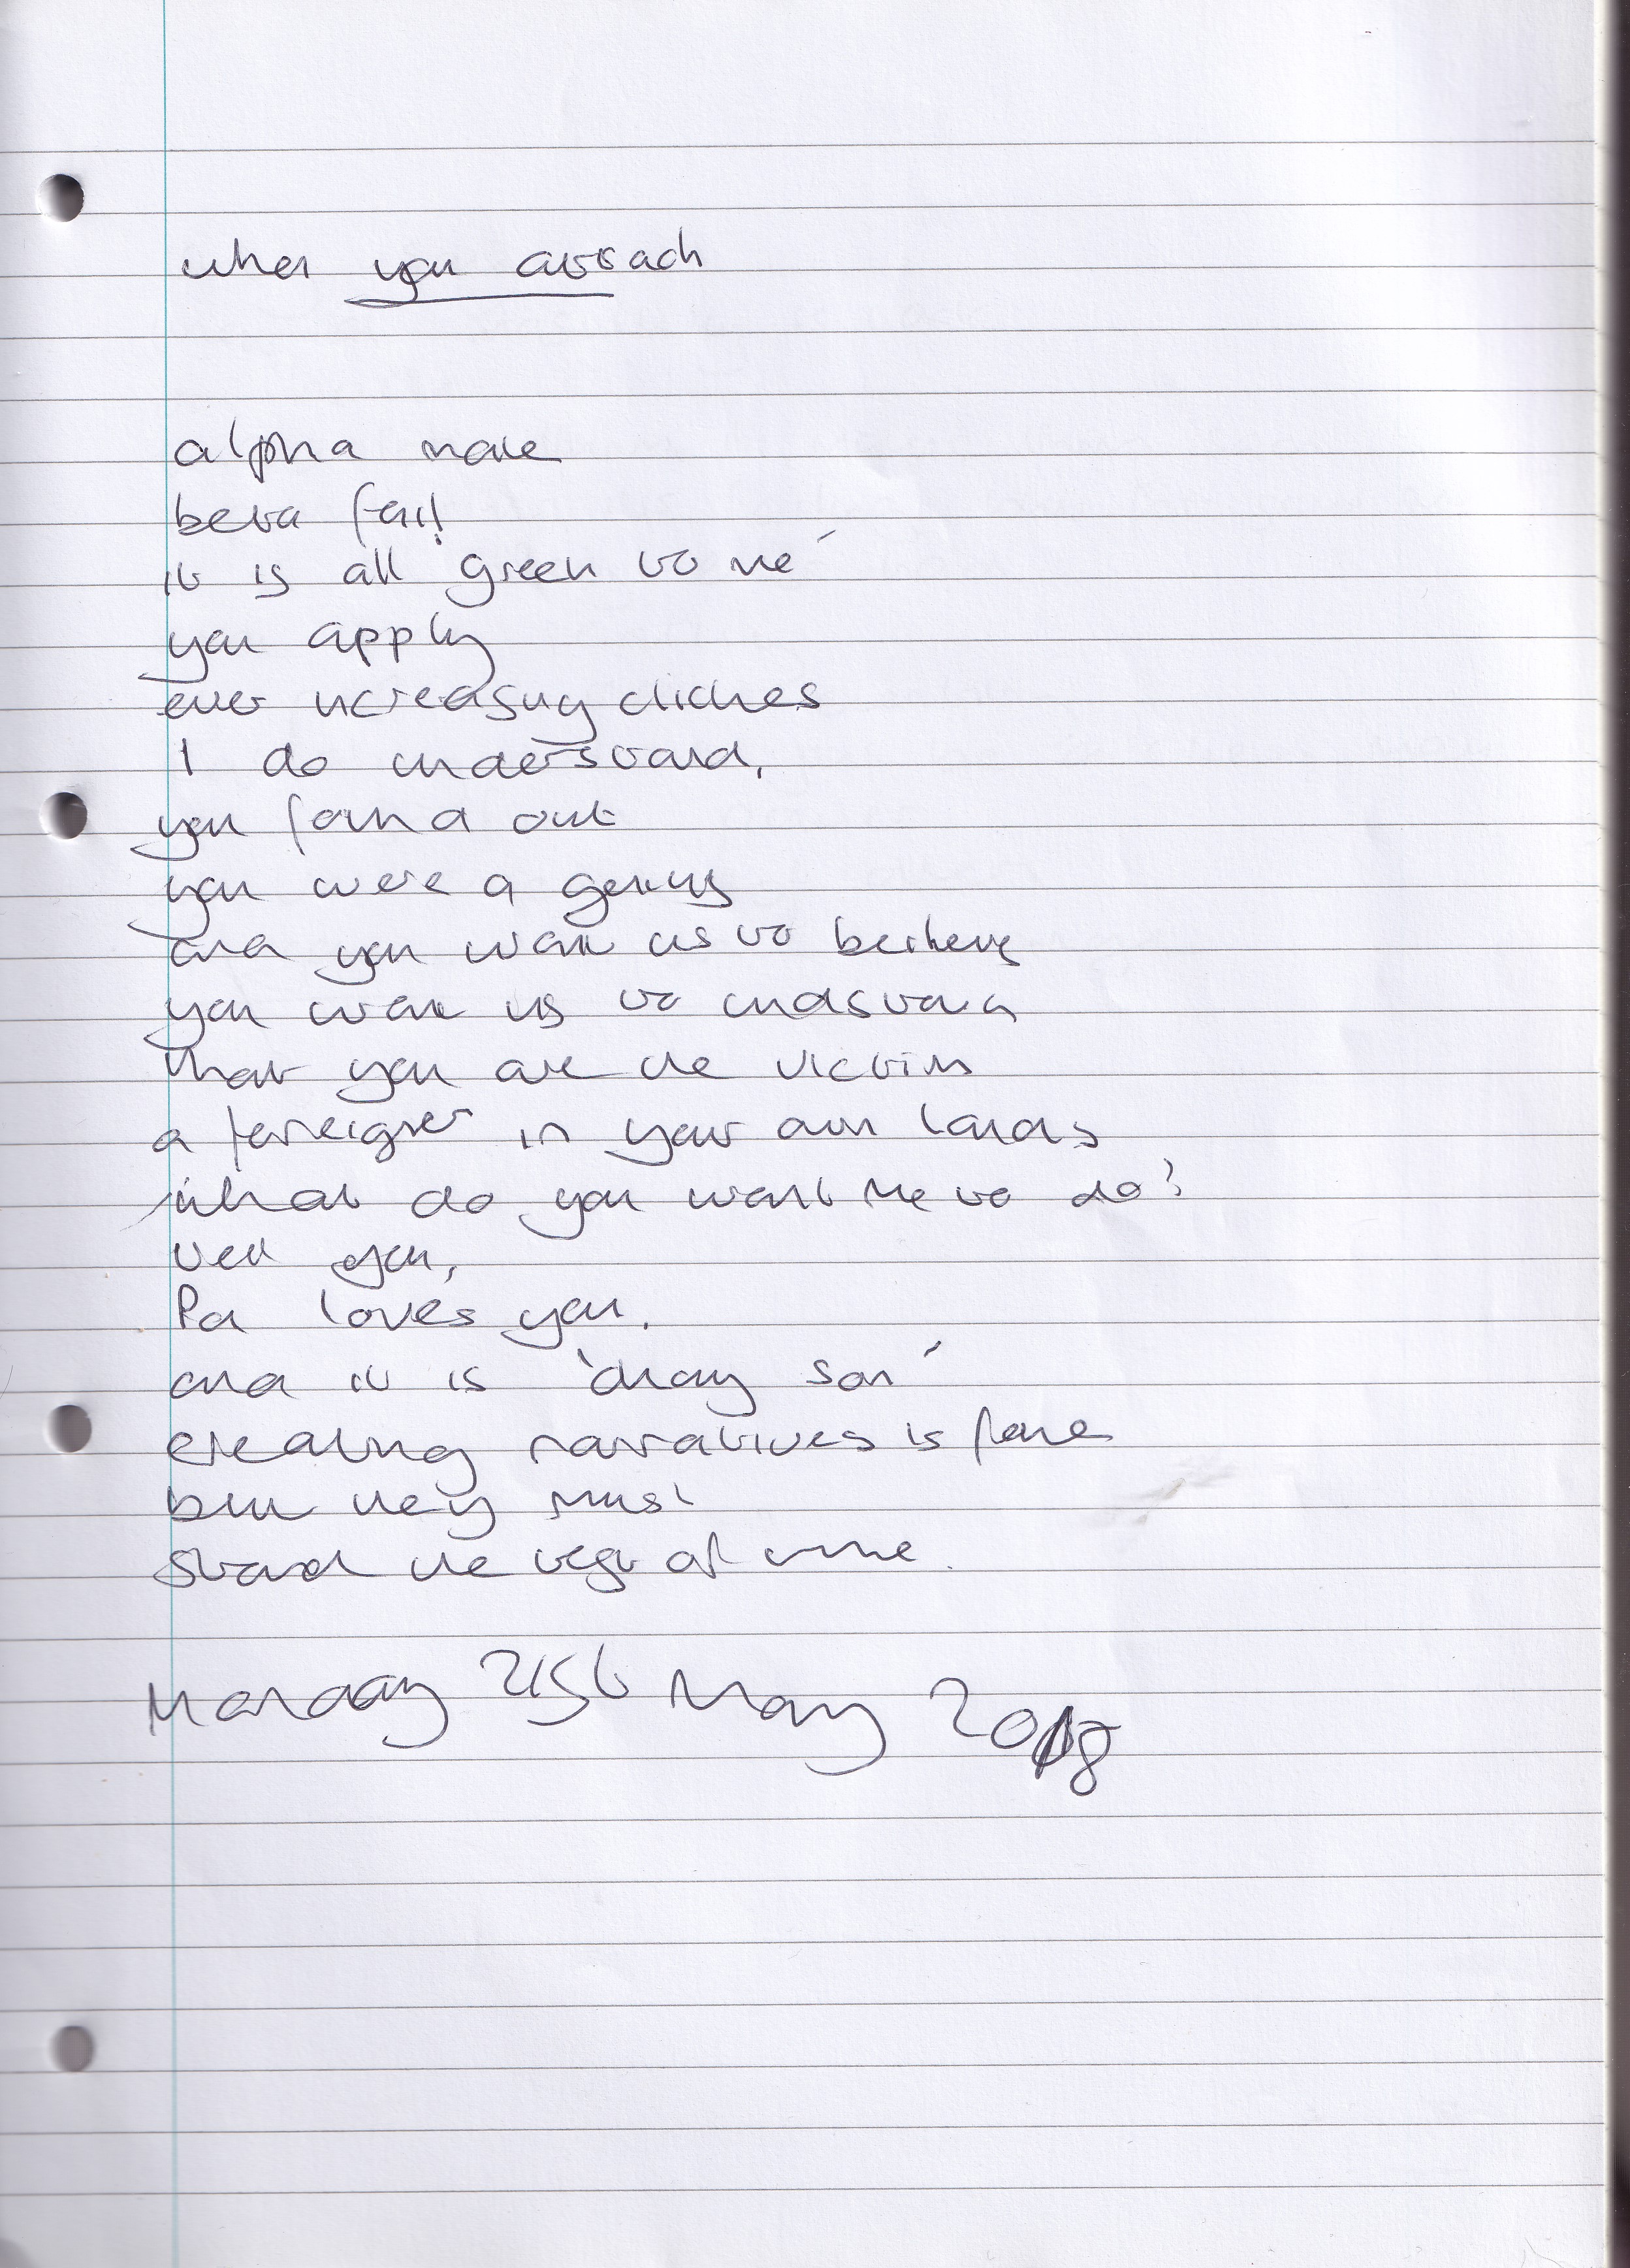 when you attach
alpha male
beta fail
it is all 'green to me'
you apply
ever increasing cliches
I do understand,
you found out
you were a genius
and you want us to believe
you want us to understand
that you are the victim
a foreigner in your own lands
what do you want me to do?
tell you,
Pa loves you.
and it is 'okay son'
creating narratives is fine
but they must
stand the test of time.
Monday 21st May 2018